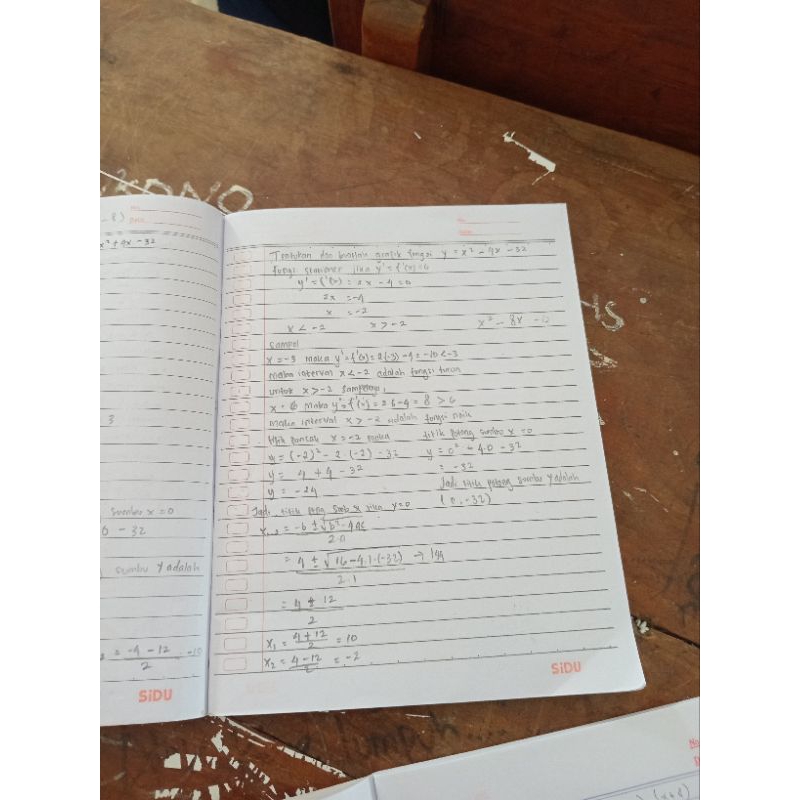 -8)
x² + 4x - 32
3
sumbu x = 0
0 - 32
sumbu Y adalah
= -4 - 12
2
-10
SiDU
Tentukan dan buatlah grafik fungsi y = x² - 4x - 32
fungsi stasioner jika y' = f'(x) = 0
y' = f'(x) = 2x - 4 = 0
2x = -4
x = -2
x < -2 x > -2 x² - 8x
sampel
x = -3 maka y' = f'(x) = 2(-3) - 4 = -10 < -3
maka interval x < -2 adalah fungsi turun
untuk x > -2
x = 6 maka y' = f'(x) = 2 6 - 4 = 8 > 6
maka interval x > -2 adalah fungsi naik
titik puncak x = -2 maka titik potong sumbu x = 0
y = (-2)² - 2 · (-2) - 32 y = 0² - 4.0 - 32
y = 4 + 4 - 32 = -32
y = -24 Jadi titik potong sumbu Y adalah
Jadi titik potong sumbu x jika y = 0 (0, -32)
= -b ± √b² - 4ac
2.a
= 4 ± √16 - 4.1.(-32) → 144
2.1
= 4 ± 12
2
x₁ = 4 + 12 = 10
2
x₂ = 4 - 12 = -2
2
SiDU
(x+8)